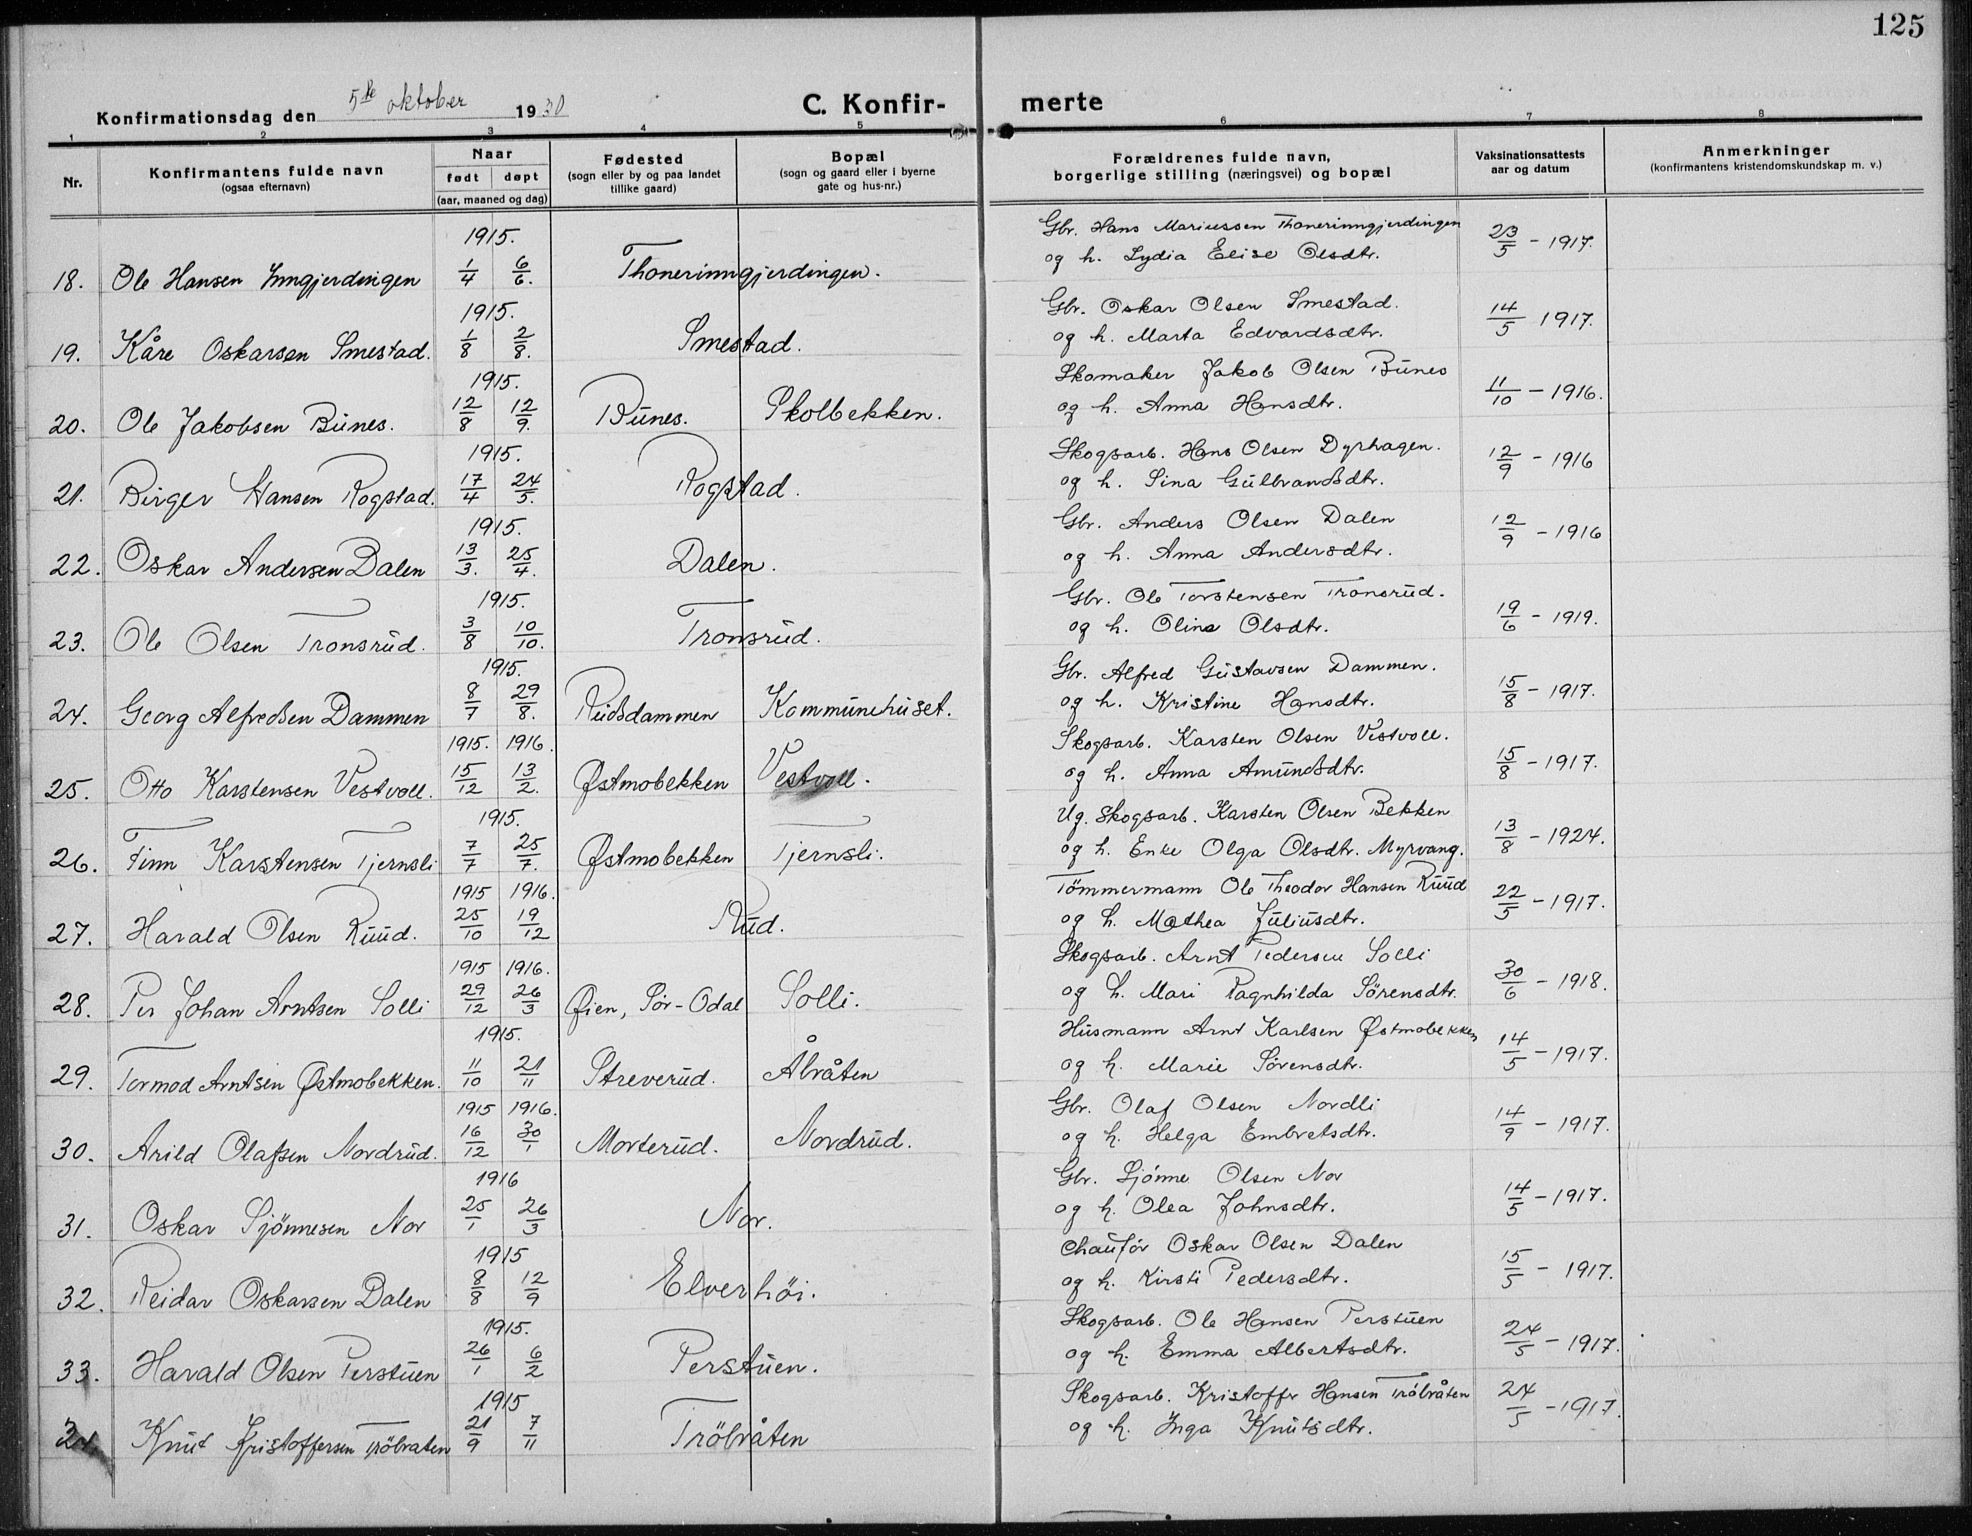 125
Konfirmationsdag den 5te oktober 1930
C. Konfir- merte
1 2 3 4 5 6 7 8
Nr.
Konfirmantens fulde navn
(ogsaa efternavn)
Naar
født døpt
(aar, maaned og dag)
Fødested
(sogn eller by og paa landet
tillike gaard)
Bopæl
(sogn og gaard eller i byerne
gate og hus-nr.)
Forældrenes fulde navn,
borgerlige stilling (næringsvei) og bopæl
Vaksinationsattests
aar og datum
Anmerkninger
(konfirmantens kristendomskundskap m. v.)
1915. Gbr. Hans Mariussen Thonerinngjerdingen
18. Ole Hansen Inngjerdingen 1/4 6/6. Thonerinngjerdingen. og h. Lydia Elise Olsdtr. 23/5 - 1917.
1915. Gbr. Oskar Olsen Smestad.
19. Kåre Oskarsen Smestad. 1/8 2/8. Smestad. og h. Marta Edvardsdtr. 14/5 1917.
1915. Skomaker Jakob Olsen Bünes
20. Ole Jakobsen Bünes. 12/8 12/9. Bünes. Skolbekken. og h. Anna Hansdtr. 11/10 - 1916.
1915. Skogsarb. Hans Olsen Dyrhagen.
21. Birger Hansen Rogstad. 17/4 24/5. Rogstad. og h. Sina Gülbrandsdtr. 12/9 - 1916
1915. Gbr. Anders Olsen Dalen
22. Oskar Andersen Dalen 13/3. 25/4. Dalen. og h. Anna Andersdtr. 12/9 - 1916
1915. Gbr. Ole Torstensen Tronsrüd.
23. Ole Olsen Tronsrüd. 3/8 10/10. Tronsrüd. og h. Oline Olsdtr. 19/6 - 1919.
1915. Gbr. Alfred Güstavsen Dammen.
24. Georg Alfredsen Dammen 8/7 29/8. Reidsdammen Kommünehüset. og h. Kristine Hansdtr. 15/8 - 1917.
1915. 1916. Skogsarb. Karsten Olsen Vestvoll.
25. Otto Karstensen Vestvoll. 15/12 13/2. Østmobekken Vestvoll. og h. Anna Amündsdtr. 15/8 - 1917.
1915. Ug. skogsarb. Karsten Olsen Bekken
26. Finn Karstensen Tjernsli 7/7 25/7. Østmobekken Tjernsli. og h. Enke Olga Olsdtr. Myrvang. 13/8 - 1924.
1915 1916. Tömmermann Ole Theodor Hansen Rüud
27. Harald Olsen Rüud. 25/10 19/12 Rüd. og h. Mathea Jüliüsdtr. 22/5 - 1917.
1915 1916. Skogsarb. Arnt Pedersen Solli
28. Per Johan Arntsen Solli 29/12 26/3 Øien, Sör-Odal Solli. og h. Mari Ragnhilda Sörensdtr. 30/6 - 1918.
1915. Hüsmann Arnt Karlsen Østmobekken
29. Tormod Arntsen Østmobekken. 11/10 21/11 Streverüd. Åbråten og h. Marie Sörensdtr. 14/5 - 1917.
1915 1916. Gbr. Olaf Olsen Nordli
30. Arild Olafsen Nordrüd. 16/12 30/1 Morterüd. Nordrüd. og h. Helga Embretsdtr. 14/9 - 1917.
1916 Gbr. Sjönne Olsen Nor
31. Oskar Sjönnesen Nor 25/1 26/3 Nor. og h. Olea Johnsdtr. 14/5 - 1917.
1915 Chauför Oskar Olsen Dalen
32. Reidar Oskarsen Dalen 8/8 12/9 Elverhöi. og h. Kirsti Pedersdtr. 15/5 - 1917.
1915. Skogsarb. Ole Hansen Perstüen
33. Harald Olsen Perstüen 26/1 6/2 Perstüen. og h. Emma Albertsdtr. 24/5 - 1917.
1915 Skogsarb. Kristoffer Hansen Tröbråten
34. Knut Kristoffersen Tröbraten 21/9 7/11 Tröbråten og h. Inga Knütsdtr. 24/5 - 1917.